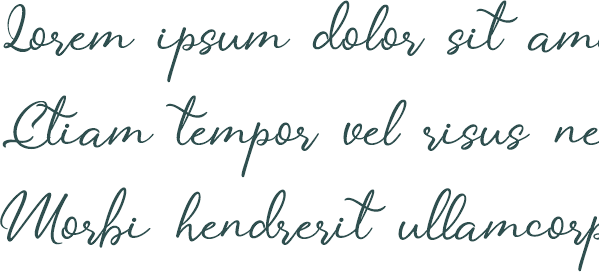 Lorem ipsum dolor sit am
Etiam tempor vel risus ne
Morbi hendrerit ullamcorp